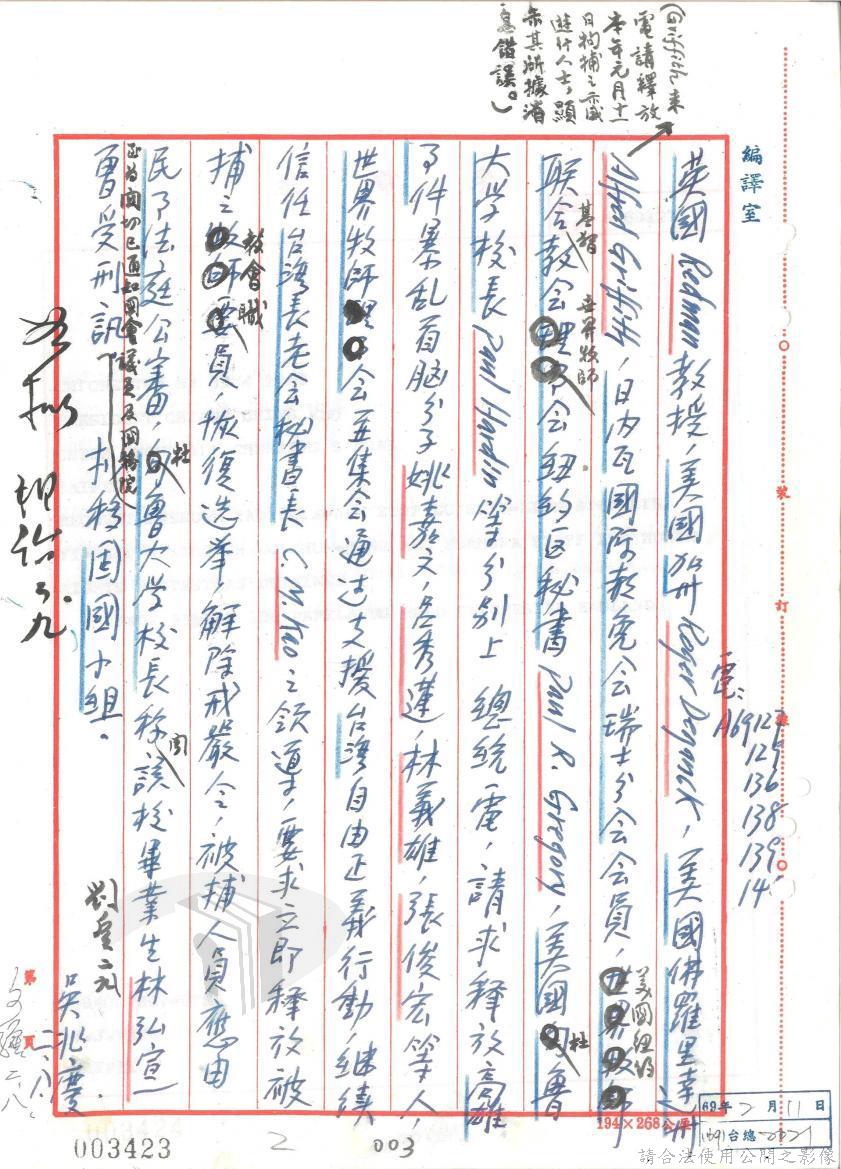 (Griffith 來
電請釋放
本年元月十一
日拘捕之示威
遊行人士,顯
示其所據消
息錯誤。)
編譯室
電:A69127
129
136
138
139
裝
訂
線
英國 Redman 教授,美國加州 Roger,美國佛羅里達州
Alfred Griffith,日內瓦國际赦免会瑞士分会会員,美國紐約
联合基督教会世界牧師会紐約区秘書 Paul R. Gregory,美國杜魯
大学校長 Paul Hardin 等分別上 總統電,請求釋放高雄
事件暴乱首脑分子姚嘉文,呂秀蓮,林義雄,張俊宏等人,
世界牧師会並集会通过支援台湾自由正義行動,継続
信任台湾長老会秘書長 C.M. Kao 之領導,要求立即釋放被
捕之教會職員,恢復选举,解除戒嚴令,被捕人員應由
民事法庭公審,杜魯大学校長称聞該校畢業生林弘宣
曾受刑訊,至為関切已通知國會議員及國務院 擬移固國小組。
吳兆慶 二.八.
第 頁
194×268公厘
69年2月11日
(69)台總 2021
003423
2
003
請合法使用公開之影像